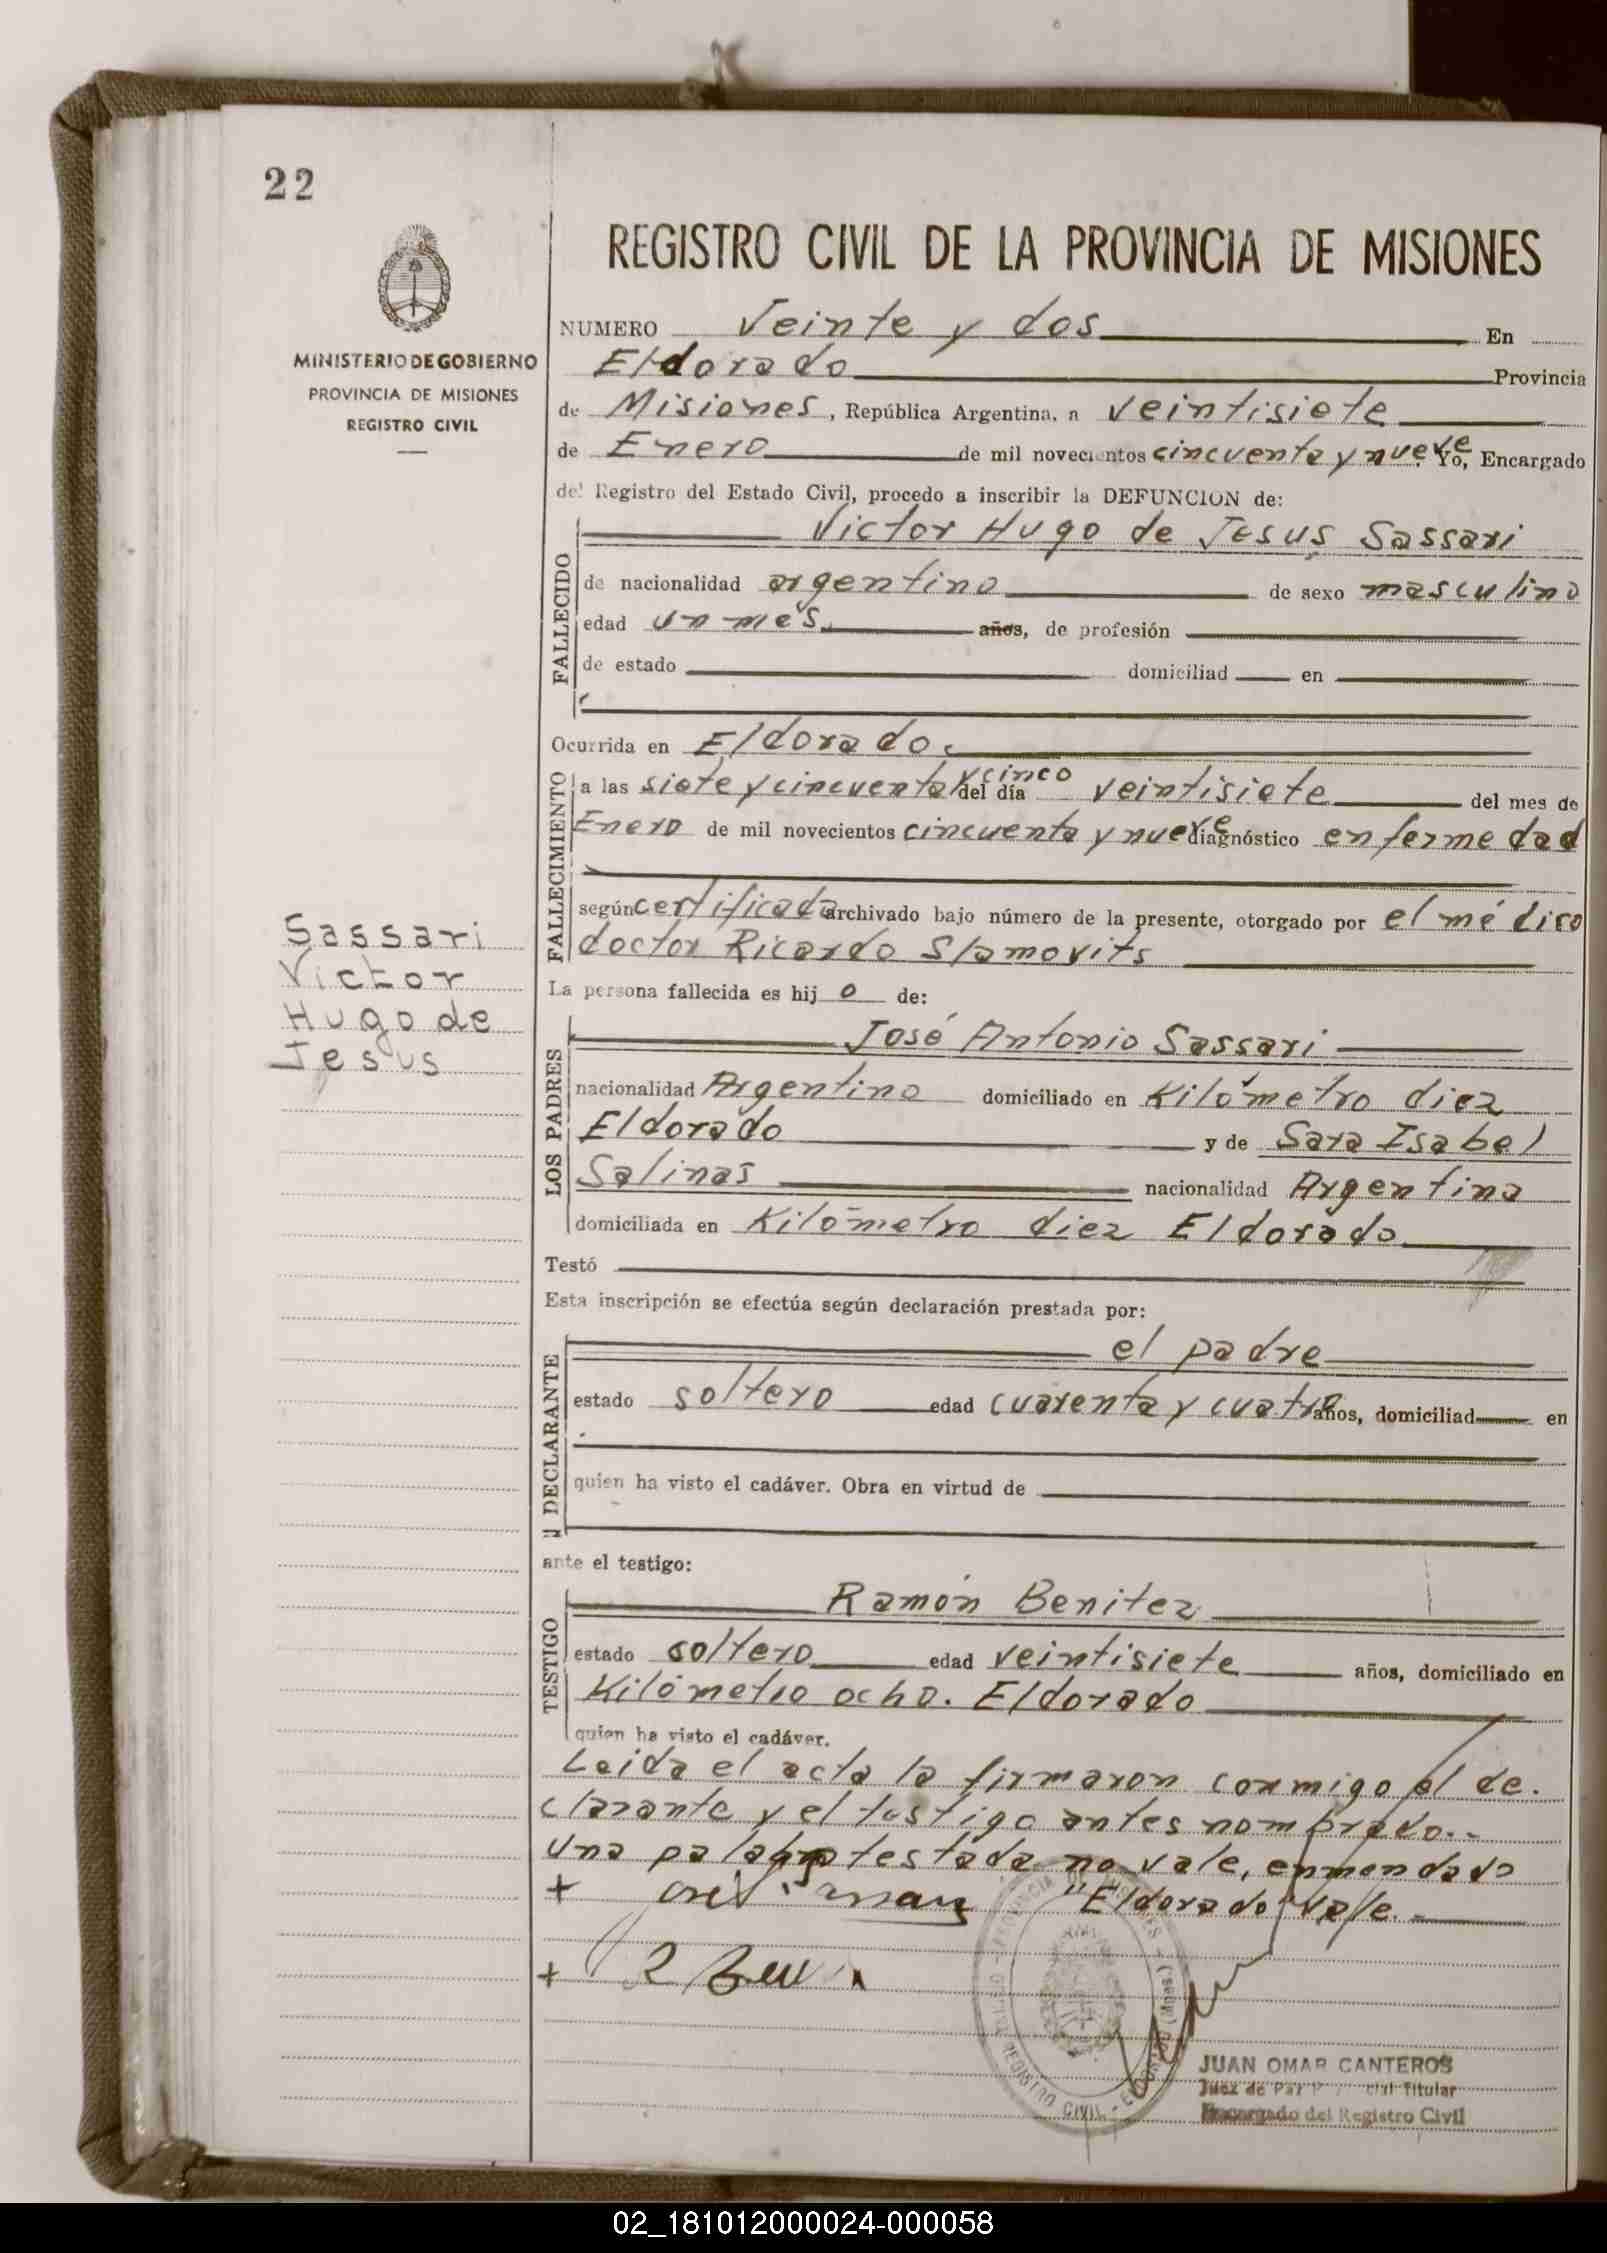 22
MINISTERIO DE GOBIERNO
PROVINCIA DE MISIONES
REGISTRO CIVIL
REGISTRO CIVIL DE LA PROVINCIA DE MISIONES
NUMERO Veinte y dos En
Eldorado Provincia
de Misiones, República Argentina, a veintisiete
de Enero de mil novecientos cincuenta y nueve Yo, Encargado
del Registro del Estado Civil, procedo a inscribir la DEFUNCION de:
FALLECIDO
Victor Hugo de Jesus Sassari
de nacionalidad argentino de sexo masculino
edad un mes años, de profesión
de estado domiciliad en
Ocurrida en Eldorado.
FALLECIMIENTO
a las siete y cincuenta y cinco del día veintisiete del mes de
Enero de mil novecientos cincuenta y nueve diagnóstico enfermedad
según certificado archivado bajo número de la presente, otorgado por el médico
doctor Ricardo Slamovits
Sassari
Victor
Hugo de
Jesus
La persona fallecida es hij o de:
LOS PADRES
José Antonio Sassari
nacionalidad Argentina domiciliado en Kilómetro diez
Eldorado y de Sara Isabel
Salinas nacionalidad Argentina
domiciliada en Kilómetro diez Eldorado
Testó
Esta inscripción se efectúa según declaración prestada por:
DECLARANTE
el padre
estado soltero edad cuarenta y cuatro años, domiciliad en
quien ha visto el cadáver. Obra en virtud de
ante el testigo:
TESTIGO
Ramón Benitez
estado soltero edad veintisiete años, domiciliado en
Kilómetro ocho. Eldorado
quien ha visto el cadáver.
Leida el acta la firmaron conmigo el de-
clarante y el testigo antes nombrado.-
una palabra testada no vale, enmendado
+ "Eldorado" Vale.
+
REGISTRO CIVIL
JUAN OMAR CANTEROS
Juez de Paz Titular
Encargado del Registro Civil
02_181012000024-000058